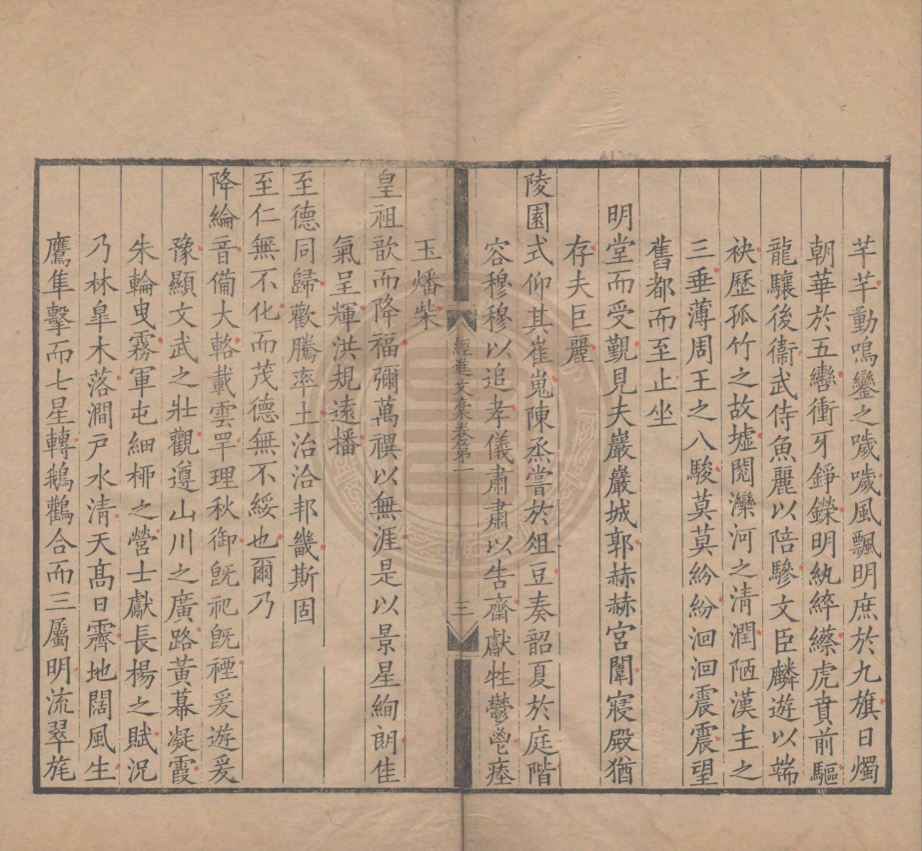 芊芊動鳴鑾之噦噦風飄明庶於九旗日燭
朝華於五轡衝牙錚鑅明紈綷縩虎賁前驅
龍驤後衞武侍魚麗以陪驂文臣麟遊以端
袂歷孤竹之故墟閱灤河之清潤陋漢主之
三垂薄周王之八駿莫莫紛紛洄洄震震望
舊都而至止坐
明堂而受覲見夫巖巖城郭赫赫宮闈寢殿猶
存夫巨麗
陵園式仰其崔嵬陳烝嘗於俎豆奏韶夏於庭階
容穆穆以追孝儀肅肅以吿齋獻牲鬱鬯瘞
經進文稾卷第一
三
玉燔柴
皇祖歆而降福彌萬禩以無涯是以景星絢朗佳
氣呈輝洪規遠播
至德同歸歡騰率土治洽邦畿斯固
至仁無不化而茂德無不綏也爾乃
降綸音備大輅載雲罕理秋御旣祀旣禋爰遊爰
豫顯文武之壯觀遵山川之廣路黃幕凝霞
朱輪曳霧軍屯細桺之營士獻長楊之賦況
乃林臯木落澗戸水清天髙日霽地闊風生
鷹隼擊而七星轉鵝鸛合而三屬明流翠旄